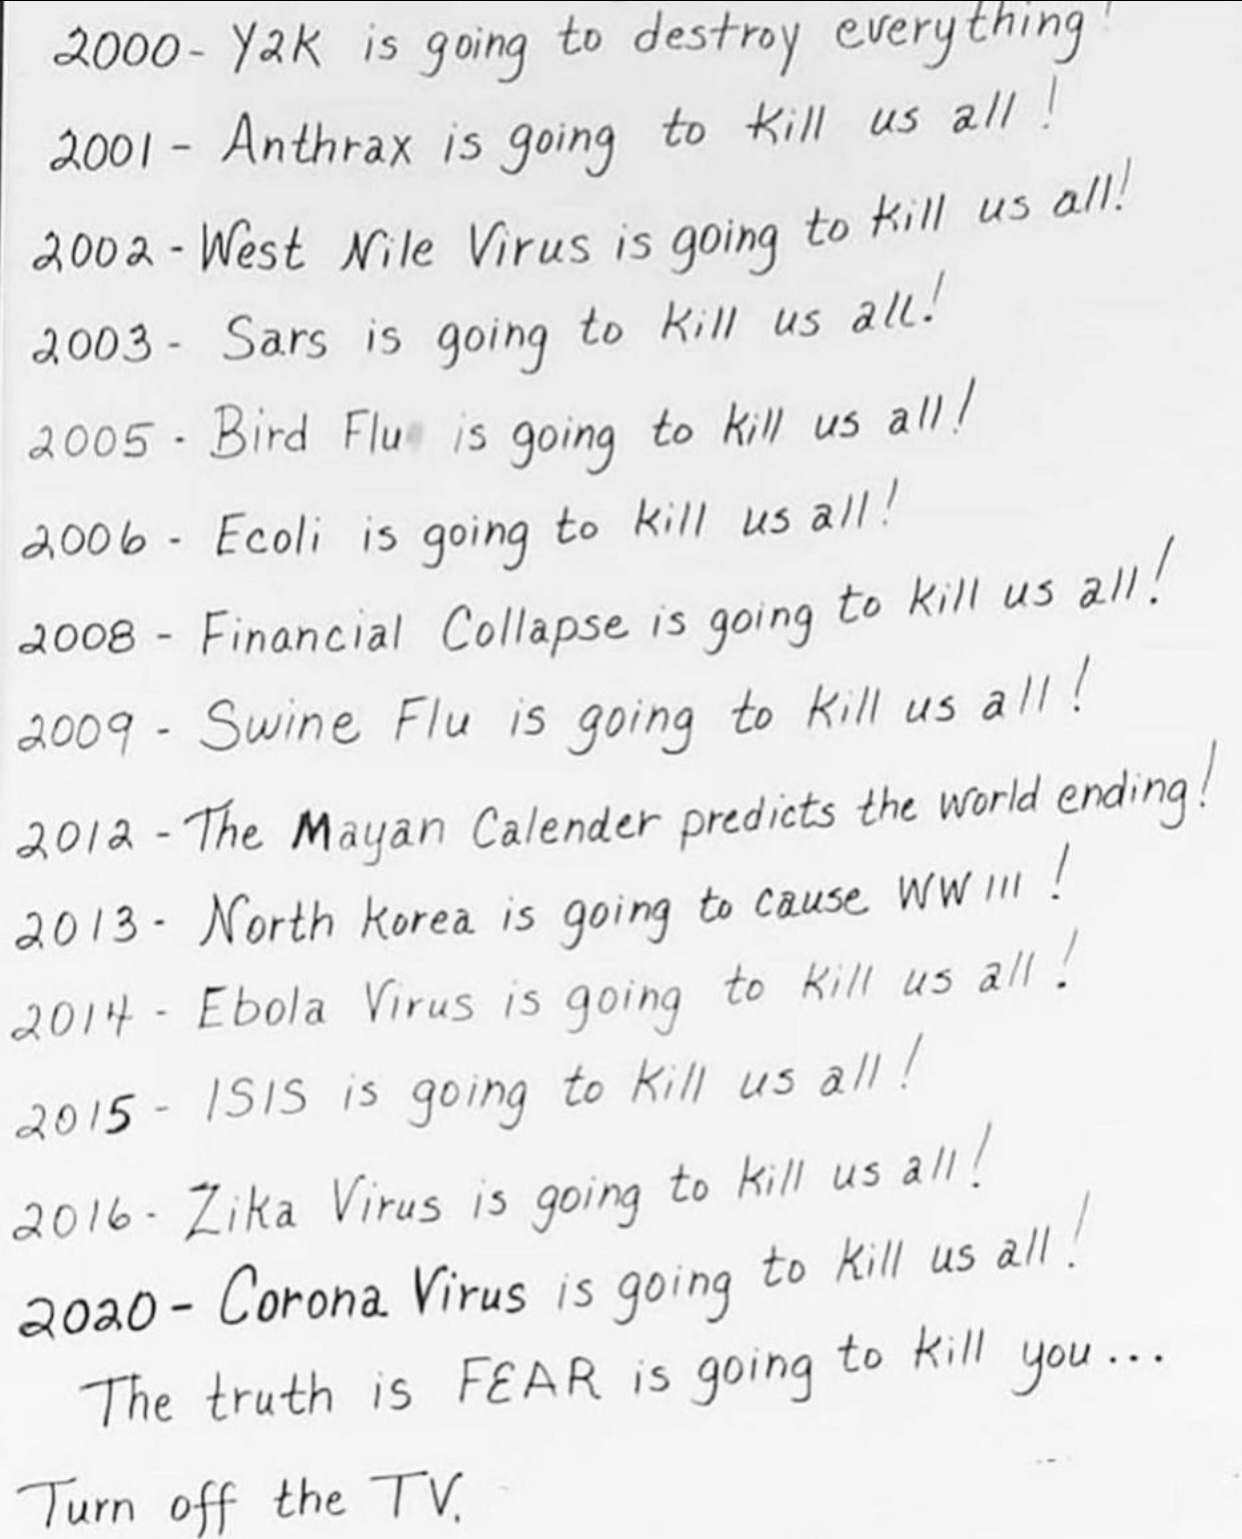 2000- Y2K is going to destroy everything!
2001 - Anthrax is going to kill us all!
2002 - West Nile Virus is going to kill us all!
2003 - Sars is going to kill us all!
2005 - Bird Flu is going to kill us all!
2006 - Ecoli is going to kill us all!
2008 - Financial Collapse is going to kill us all!
2009 - Swine Flu is going to kill us all!
2012 - The Mayan Calender predicts the world ending!
2013 - North Korea is going to cause WW III!
2014 - Ebola Virus is going to kill us all!
2015 - ISIS is going to kill us all!
2016 - Zika Virus is going to kill us all!
2020 - Corona Virus is going to kill us all!
The truth is FEAR is going to kill you...
Turn off the TV.